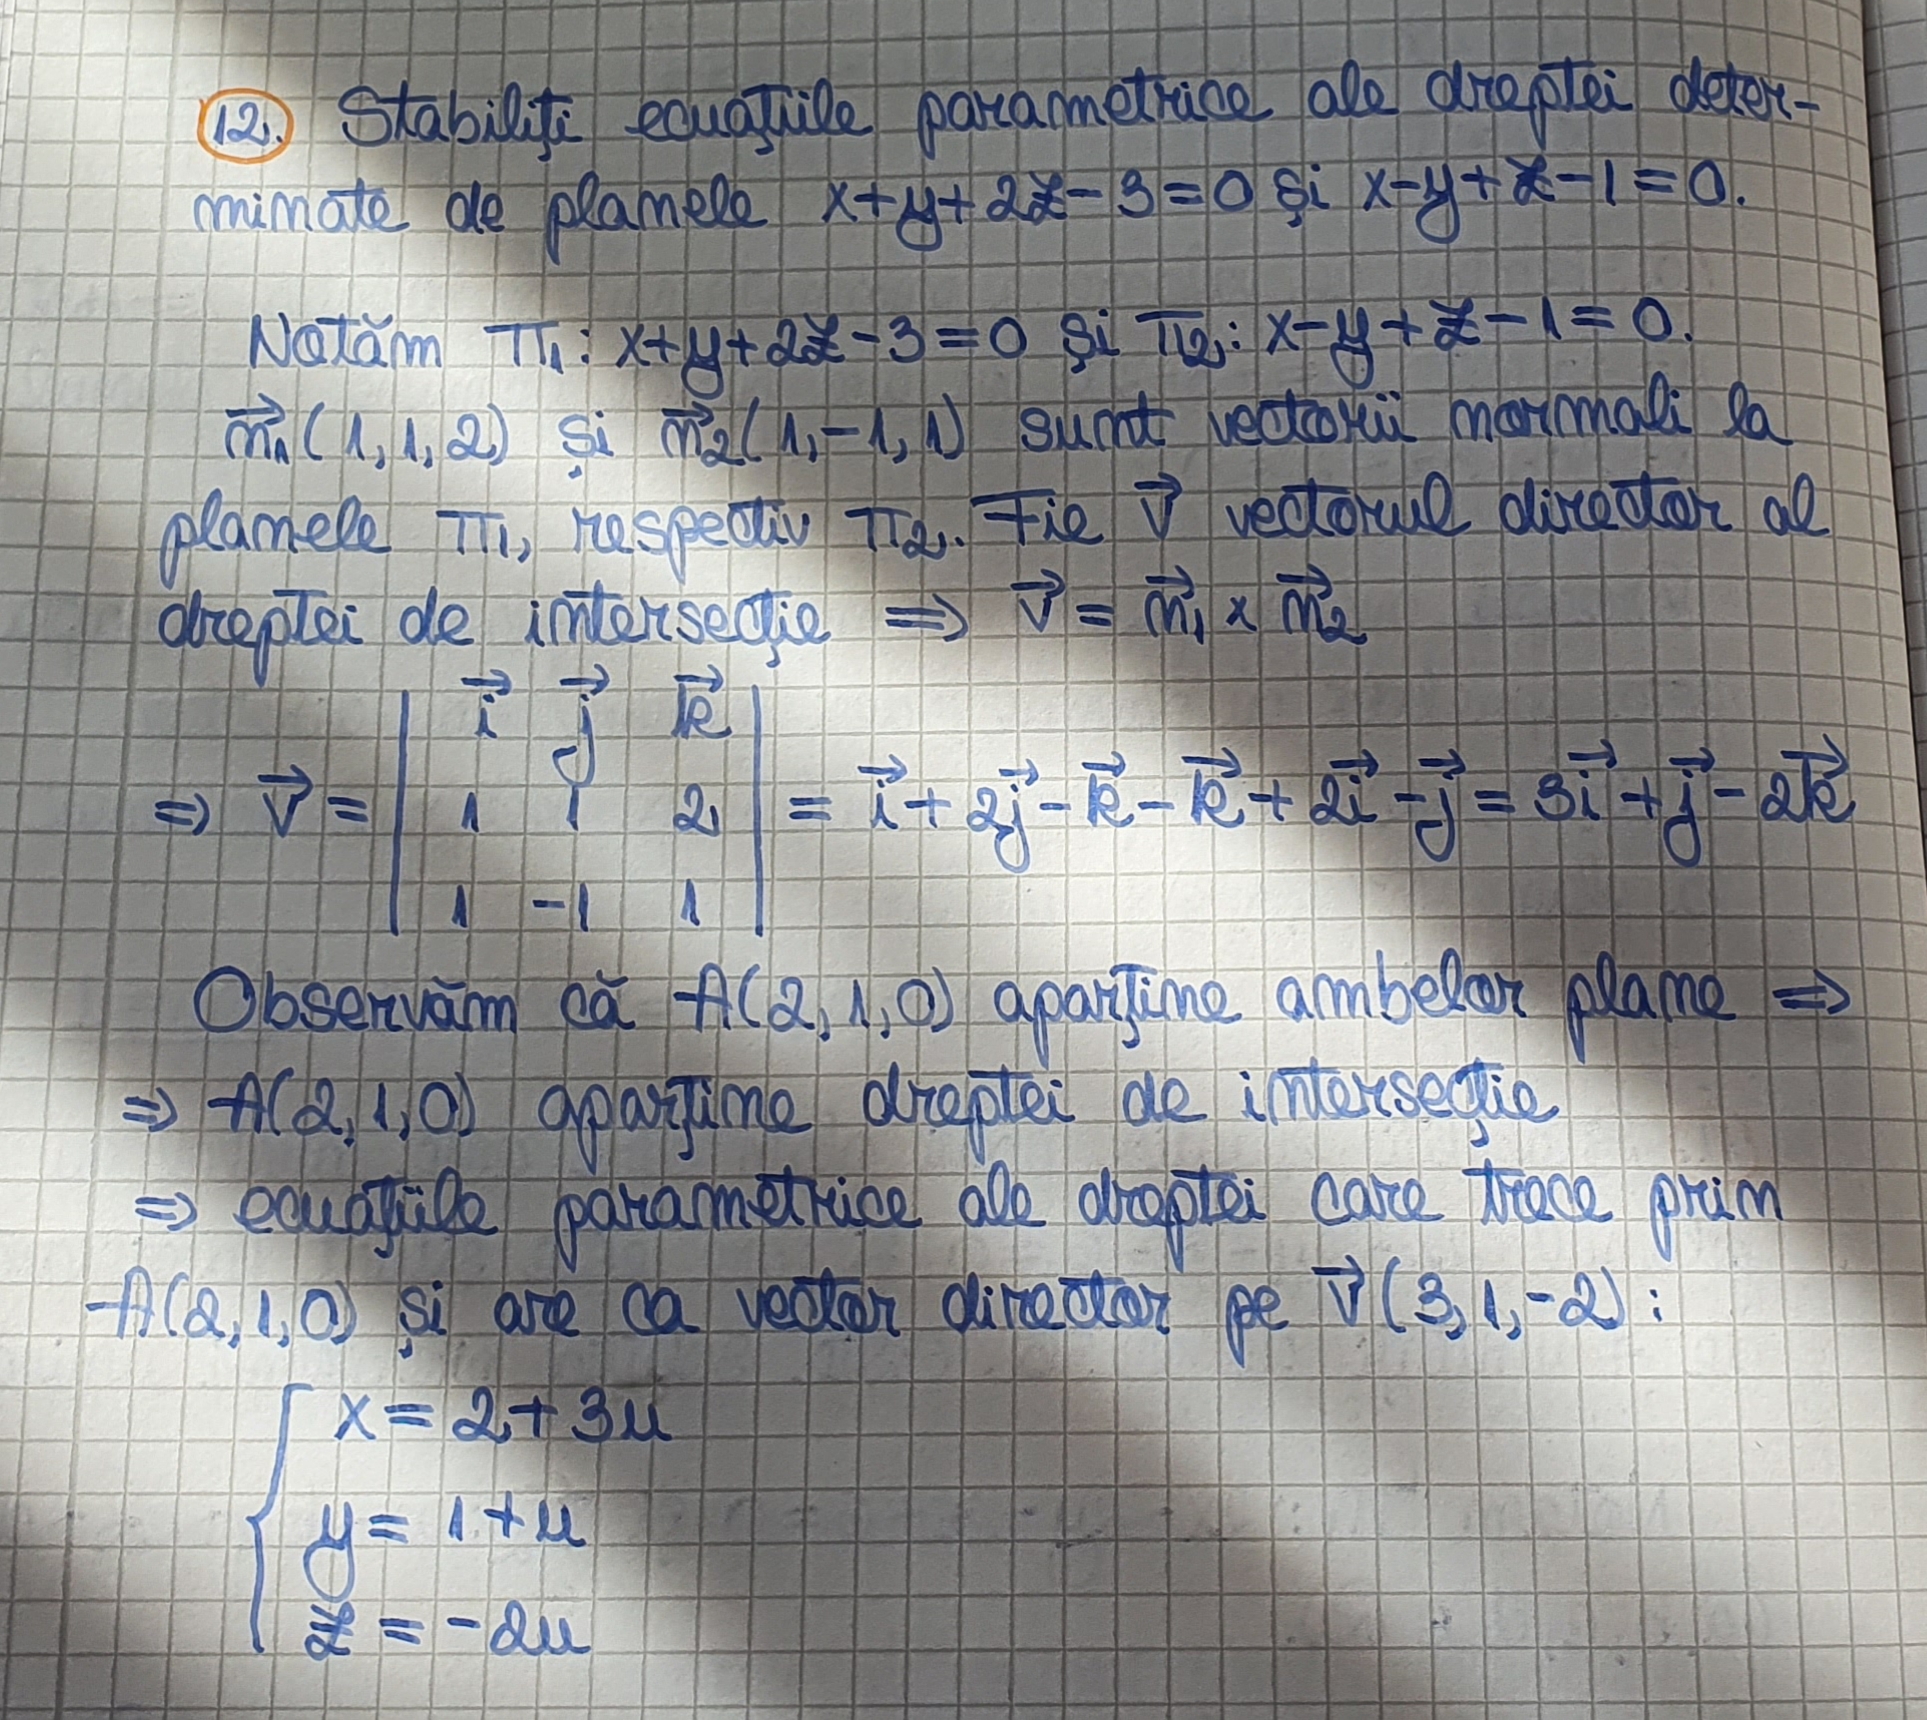 12. Stabiliți ecuațiile parametrice ale dreptei deter-
minate de planele x+y+2z-3=0 și x-y+z-1=0.
Notăm π₁: x+y+2z-3=0 și π₂: x-y+z-1=0.
n⃗₁(1,1,2) și n⃗₂(1,-1,1) sunt vectorii normali la
planele π₁, respectiv π₂. Fie v⃗ vectorul director al
dreptei de intersecție ⇒ v⃗ = n⃗₁ × n⃗₂
i⃗ j⃗ k⃗
⇒ v⃗ = | 1 1 2 | = i⃗ + 2j⃗ - k⃗ - k⃗ + 2i⃗ - j⃗ = 3i⃗ + j⃗ - 2k⃗
1 -1 1
Observăm că A(2,1,0) aparține ambelor plane ⇒
⇒ A(2,1,0) aparține dreptei de intersecție
⇒ ecuațiile parametrice ale dreptei care trece prin
A(2,1,0) și are ca vector director pe v⃗(3,1,-2):
x = 2+3u
y = 1+u
z = -2u